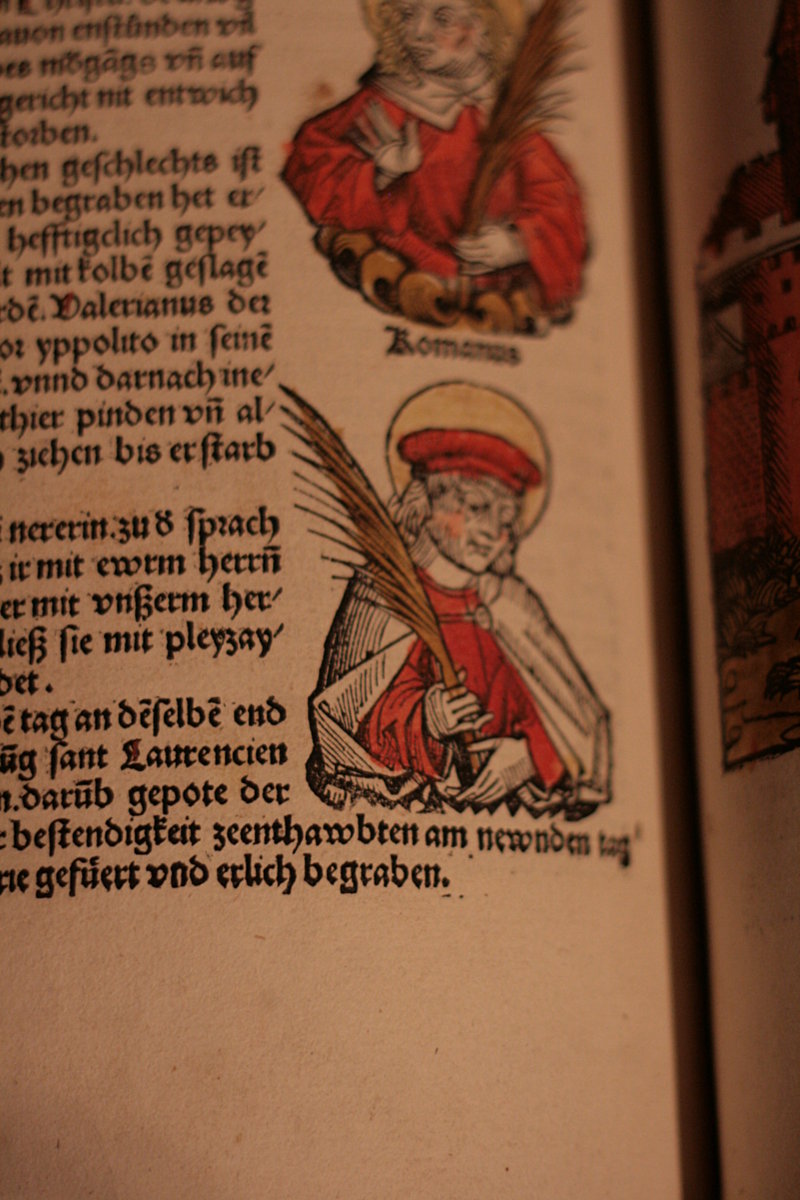 auon enstůnden vñ
mŏgãgs vñ auf
gericht nit entwich
storben.
hen geschlechts ist
en begraben het er/
hefftigclich gepey/
t mit kolbē geslagē
rdē. Valerianus der
or yppolito in seinē
. vnnd darnach ine/
thier pinden vñ al/
ziehen bis er starb
Romanus
nererin. zu d̕ sprach
ir mit ewrm herrñ
er mit vnßerm her/
ließ sie mit pleyzay/
det.
ē tag an dēselbē end
ũg sant Laurencien
n. darũb gepote der
bestendigkeit zeenthawbten am newnden tag
rie gefüert vnd erlich begraben.